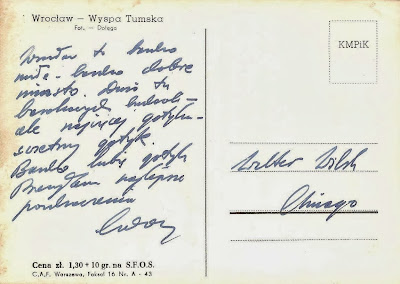 Wrocław – Wyspa Tumska
Fot. – Dołęga
KMPiK
Wrocław to bardzo
miłe – bardzo dobre
miasto. Dużo tu
barokowych
ale najwięcej gotyku –
świetny gotyk.
Bardzo lubię gotyk
najlepsze
pozdrowienia
Walter
Chicago
Cena zł. 1,30 + 10 gr. na S.F.O.S.
C.A.F. Warszawa, Foksal 16 Nr. A - 43